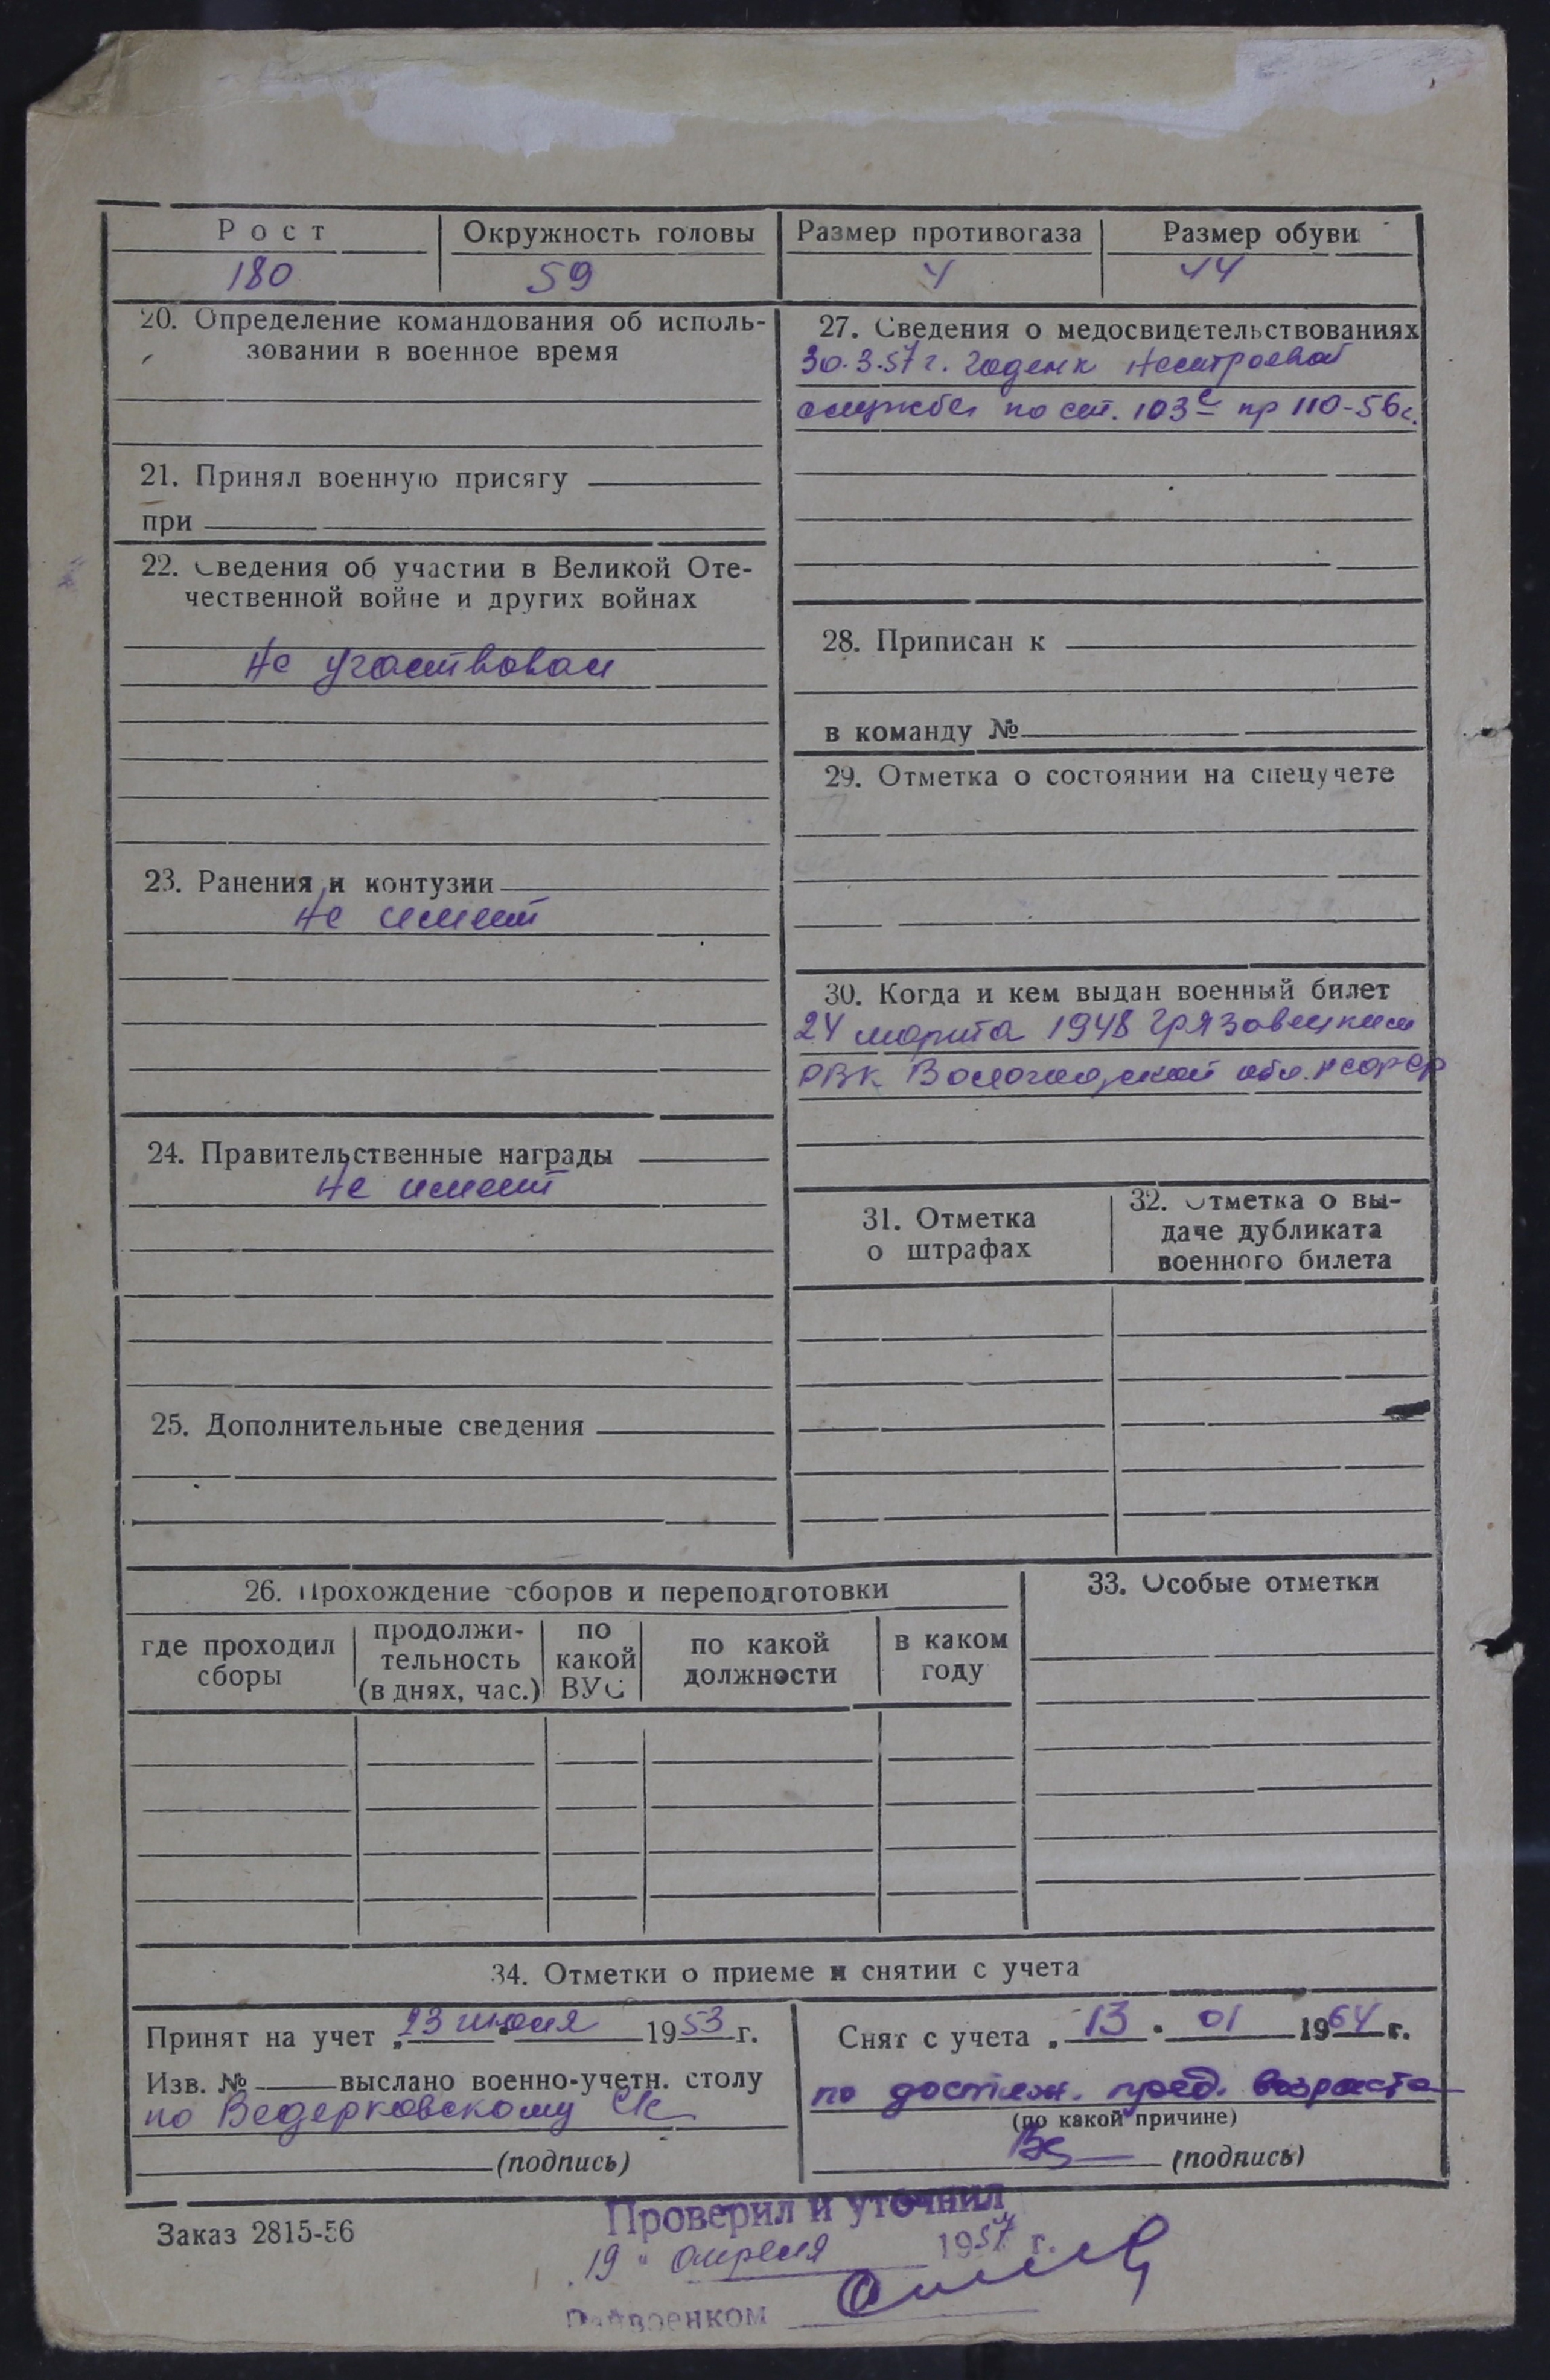 Рост
Окружность головы
Размер противогаза
Размер обуви
180
59
4
44
20. Определение командования об исполь-
зовании в военное время
21. Принял военную присягу
при
22. Сведения об участии в Великой Оте-
чественной войне и других войнах
Не участвовал
23. Ранения и контузии
Не имеет
24. Правительственные награды
Не имеет
25. Дополнительные сведения
27. Сведения о медосвидетельствованиях
30.3.57 г. годен к нестроевой
службе по ст. 103 с пр 110-56г.
28. Приписан к
в команду №
29. Отметка о состоянии на спецучете
30. Когда и кем выдан военный билет
24 марта 1948 Грязовецким
РВК Вологодской обл. РСФСР
31. Отметка
о штрафах
32. Отметка о вы-
даче дубликата
военного билета
26. Прохождение сборов и переподготовки
где проходил
сборы
продолжи-
тельность
(в днях, час.)
по
какой
ВУС
по какой
должности
в каком
году
33. Особые отметки
34. Отметки о приеме и снятии с учета
Принят на учет „23 июля 1953 г.
Изв. № выслано военно-учетн. столу
по Ведерковскому с/с
(подпись)
Снят с учета „13" 01 1964 г.
по достиж. пред. возраста
(по какой причине)
(подпись)
Заказ 2815-56
Проверил и уточнил
„19" апреля 1957 г.
Райвоенком